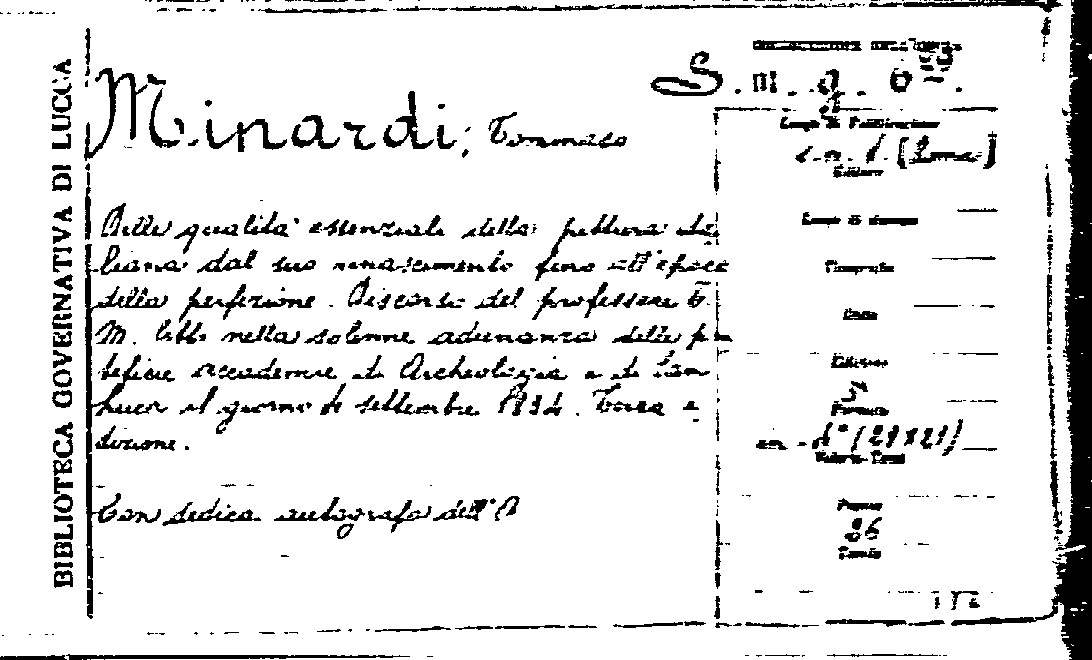 BIBLIOTECA GOVERNATIVA DI LUCCA
Minardi, Tommaso
Delle qualità essenziali della pittura ita
liana dal suo rinascimento fino all'epoca
della perfezione. Discorso del professore T.
M. letto nella solenne adunanza delle pon
teficie accademie di Archeologia e di San
Luca il giorno 4 settembre 1834. Terza e
dizione.
Con dedica autografa dell'A
S. m. g. 6
Luogo di Pubblicazione
s. n. t. [Roma]
Editore
Luogo di stampa
Tipografia
Data
Edizione
3ª
Formato
in-4° (29x21)
Pagine
36
Tavole